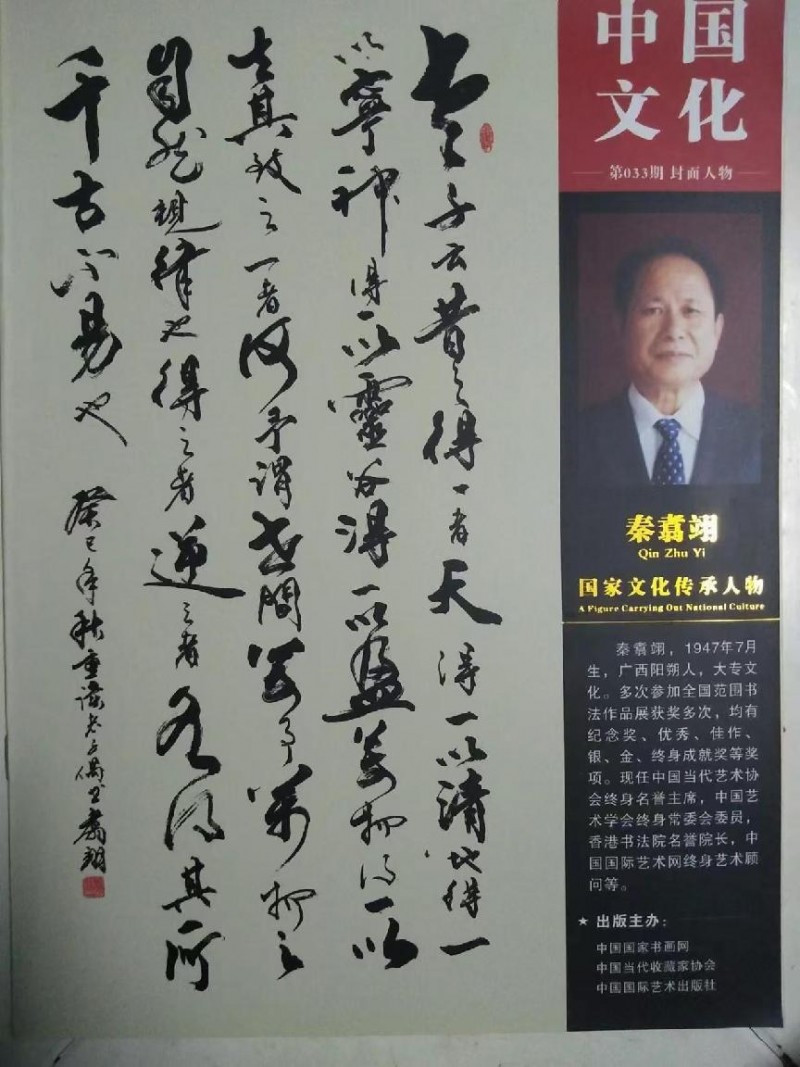 老子云昔之得一者天得一以清地得一
以寧神得一以靈谷得一以盈萬物得一以
生其致之一者何予謂世間萬事萬物之
自然規律也得之者逆之者各得其所
千古不易也
癸巳年秋重讀老子偶書翥翊
中国
文化
第033期 封面人物
秦翥翊
Qin Zhu Yi
国家文化传承人物
A Figure Carrying Out National Culture
秦翥翊，1947年7月
生，广西阳朔人，大专文
化。多次参加全国范围书
法作品展获奖多次，均有
纪念奖、优秀、佳作、
银、金、终身成就奖等奖
项。现任中国当代艺术协
会终身名誉主席，中国艺
术学会终身常委会委员，
香港书法院名誉院长，中
国国际艺术网终身艺术顾
问等。
★ 出版主办：
中国国家书画网
中国当代收藏家协会
中国国际艺术出版社